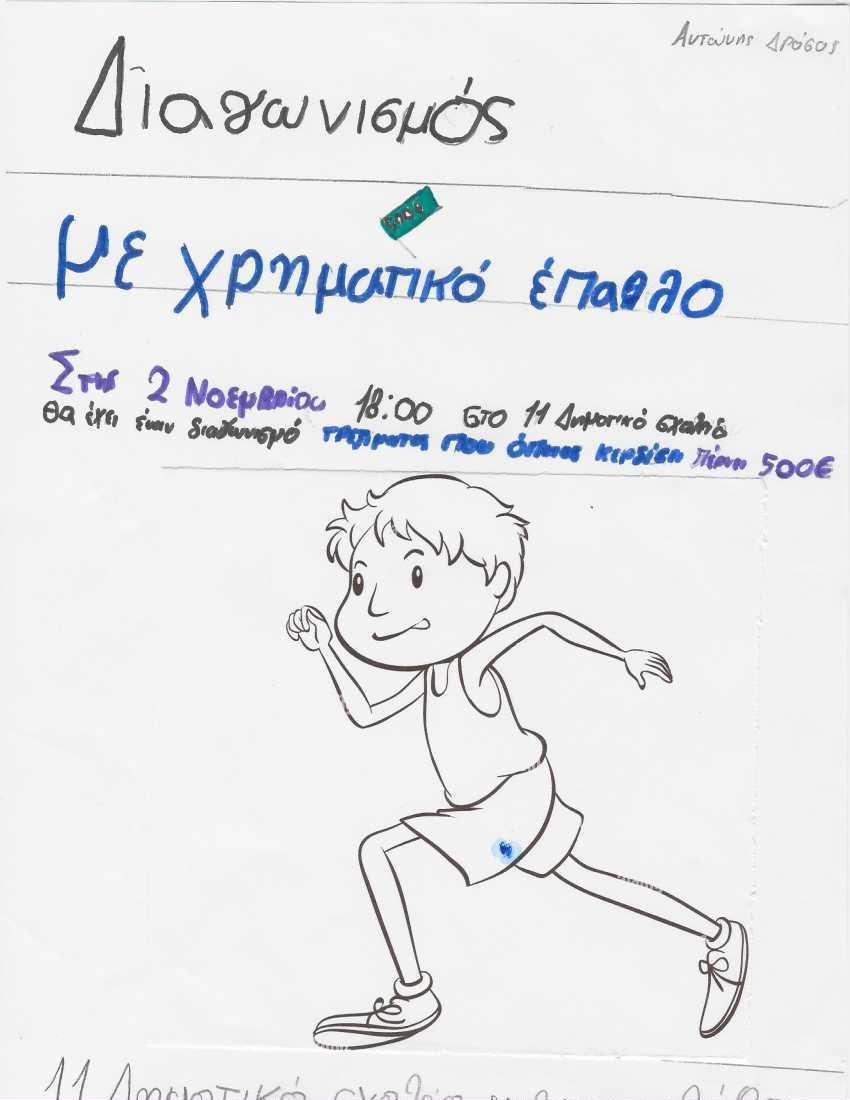 Αντώνης Δρόσος
Διαγωνισμός
500€
με χρηματικό έπαθλο
Στις 2 Νοεμβρίου 18:00 στο 11 Δημοτικό σχολείο
θα έχει έναν διαγωνισμό τρεξίματος που όποιος κερδίσει πέρνει 500€
11 Δημοτικό σχολείο